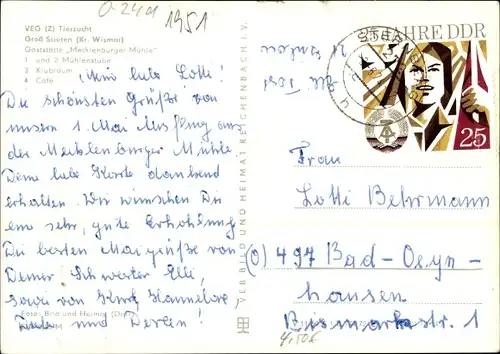 Ö 24a 1951
VEG (Z) Tierzucht
Groß Stieten (Kr. Wismar)
Gaststätte „Mecklenburger Mühle"
1 und 2 Mühlenstube
3 Klubraum
4 Café
Meine liebe Lotti!
Die schönsten Grüße von
unserm 1. Mai Ausflug aus
der Mecklenburger Mühle.
Deine liebe Karte dankend
erhalten. Wir wünschen Dir
eine sehr, gute Erholung
Die besten Maigrüße von
Deiner Schwester Elli,
sowie von Kurt, Hannelore,
und
Foto: Bild und Heimat
VEB BILD UND HEIMAT REICHENBACH I. V.
25 JAHRE DDR
25
Frau
Lotti Behrmann
(O) 497 Bad-Oeyn-
hausen
Bismarkstr. 1
4,50€